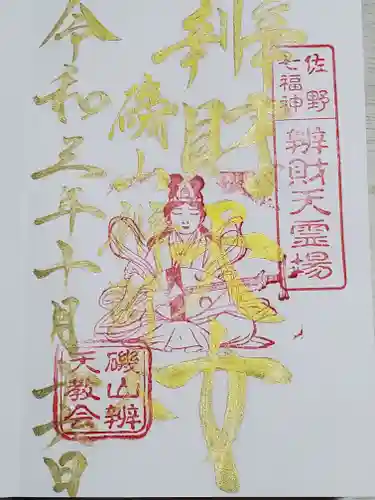 佐野
七福神
辦財天霊場
辦財天
磯山
令和三年十月
日
磯山辨
天教会